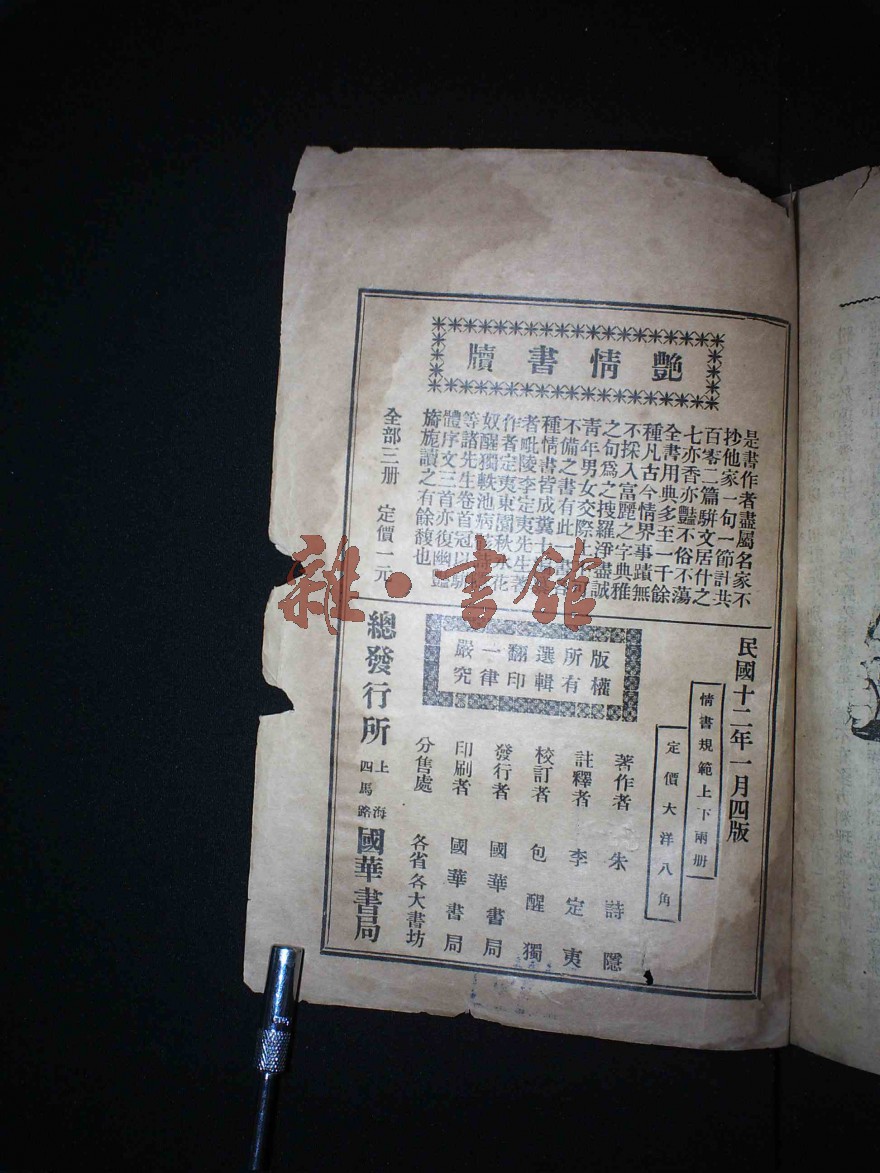 艷情書牘
是書作者盡屬名家不
抄他家一句一節計共
百零二篇駢文居什之
七亦香亦艷不俗不蕩
全書用典多至一千餘
種凡古今情界事蹟無
不採入富麗之字典雅
之句爲之搜羅淨盡誠
靑年男女交際上不可
不備之書有此一書各
種情書皆成糞土
者毗陵李定夷先生著
作者定夷東園秋水花
奴醒獨軼池病
等諸先生卷首冠以駢
體序文三首亦復幽豔
旖旎讀之有餘馥也
全部三册 定價一元
民國十二年一月四版
情書規範上下兩册
定價大洋八角
版權
所有
選輯
翻印
一律
嚴究
著作者 朱詩隱
註釋者 李定夷
校訂者 包醒獨
發行者 國華書局
印刷者 國華書局
分售處 各省各大書坊
總發行所 上海四馬路 國華書局
雜·書館